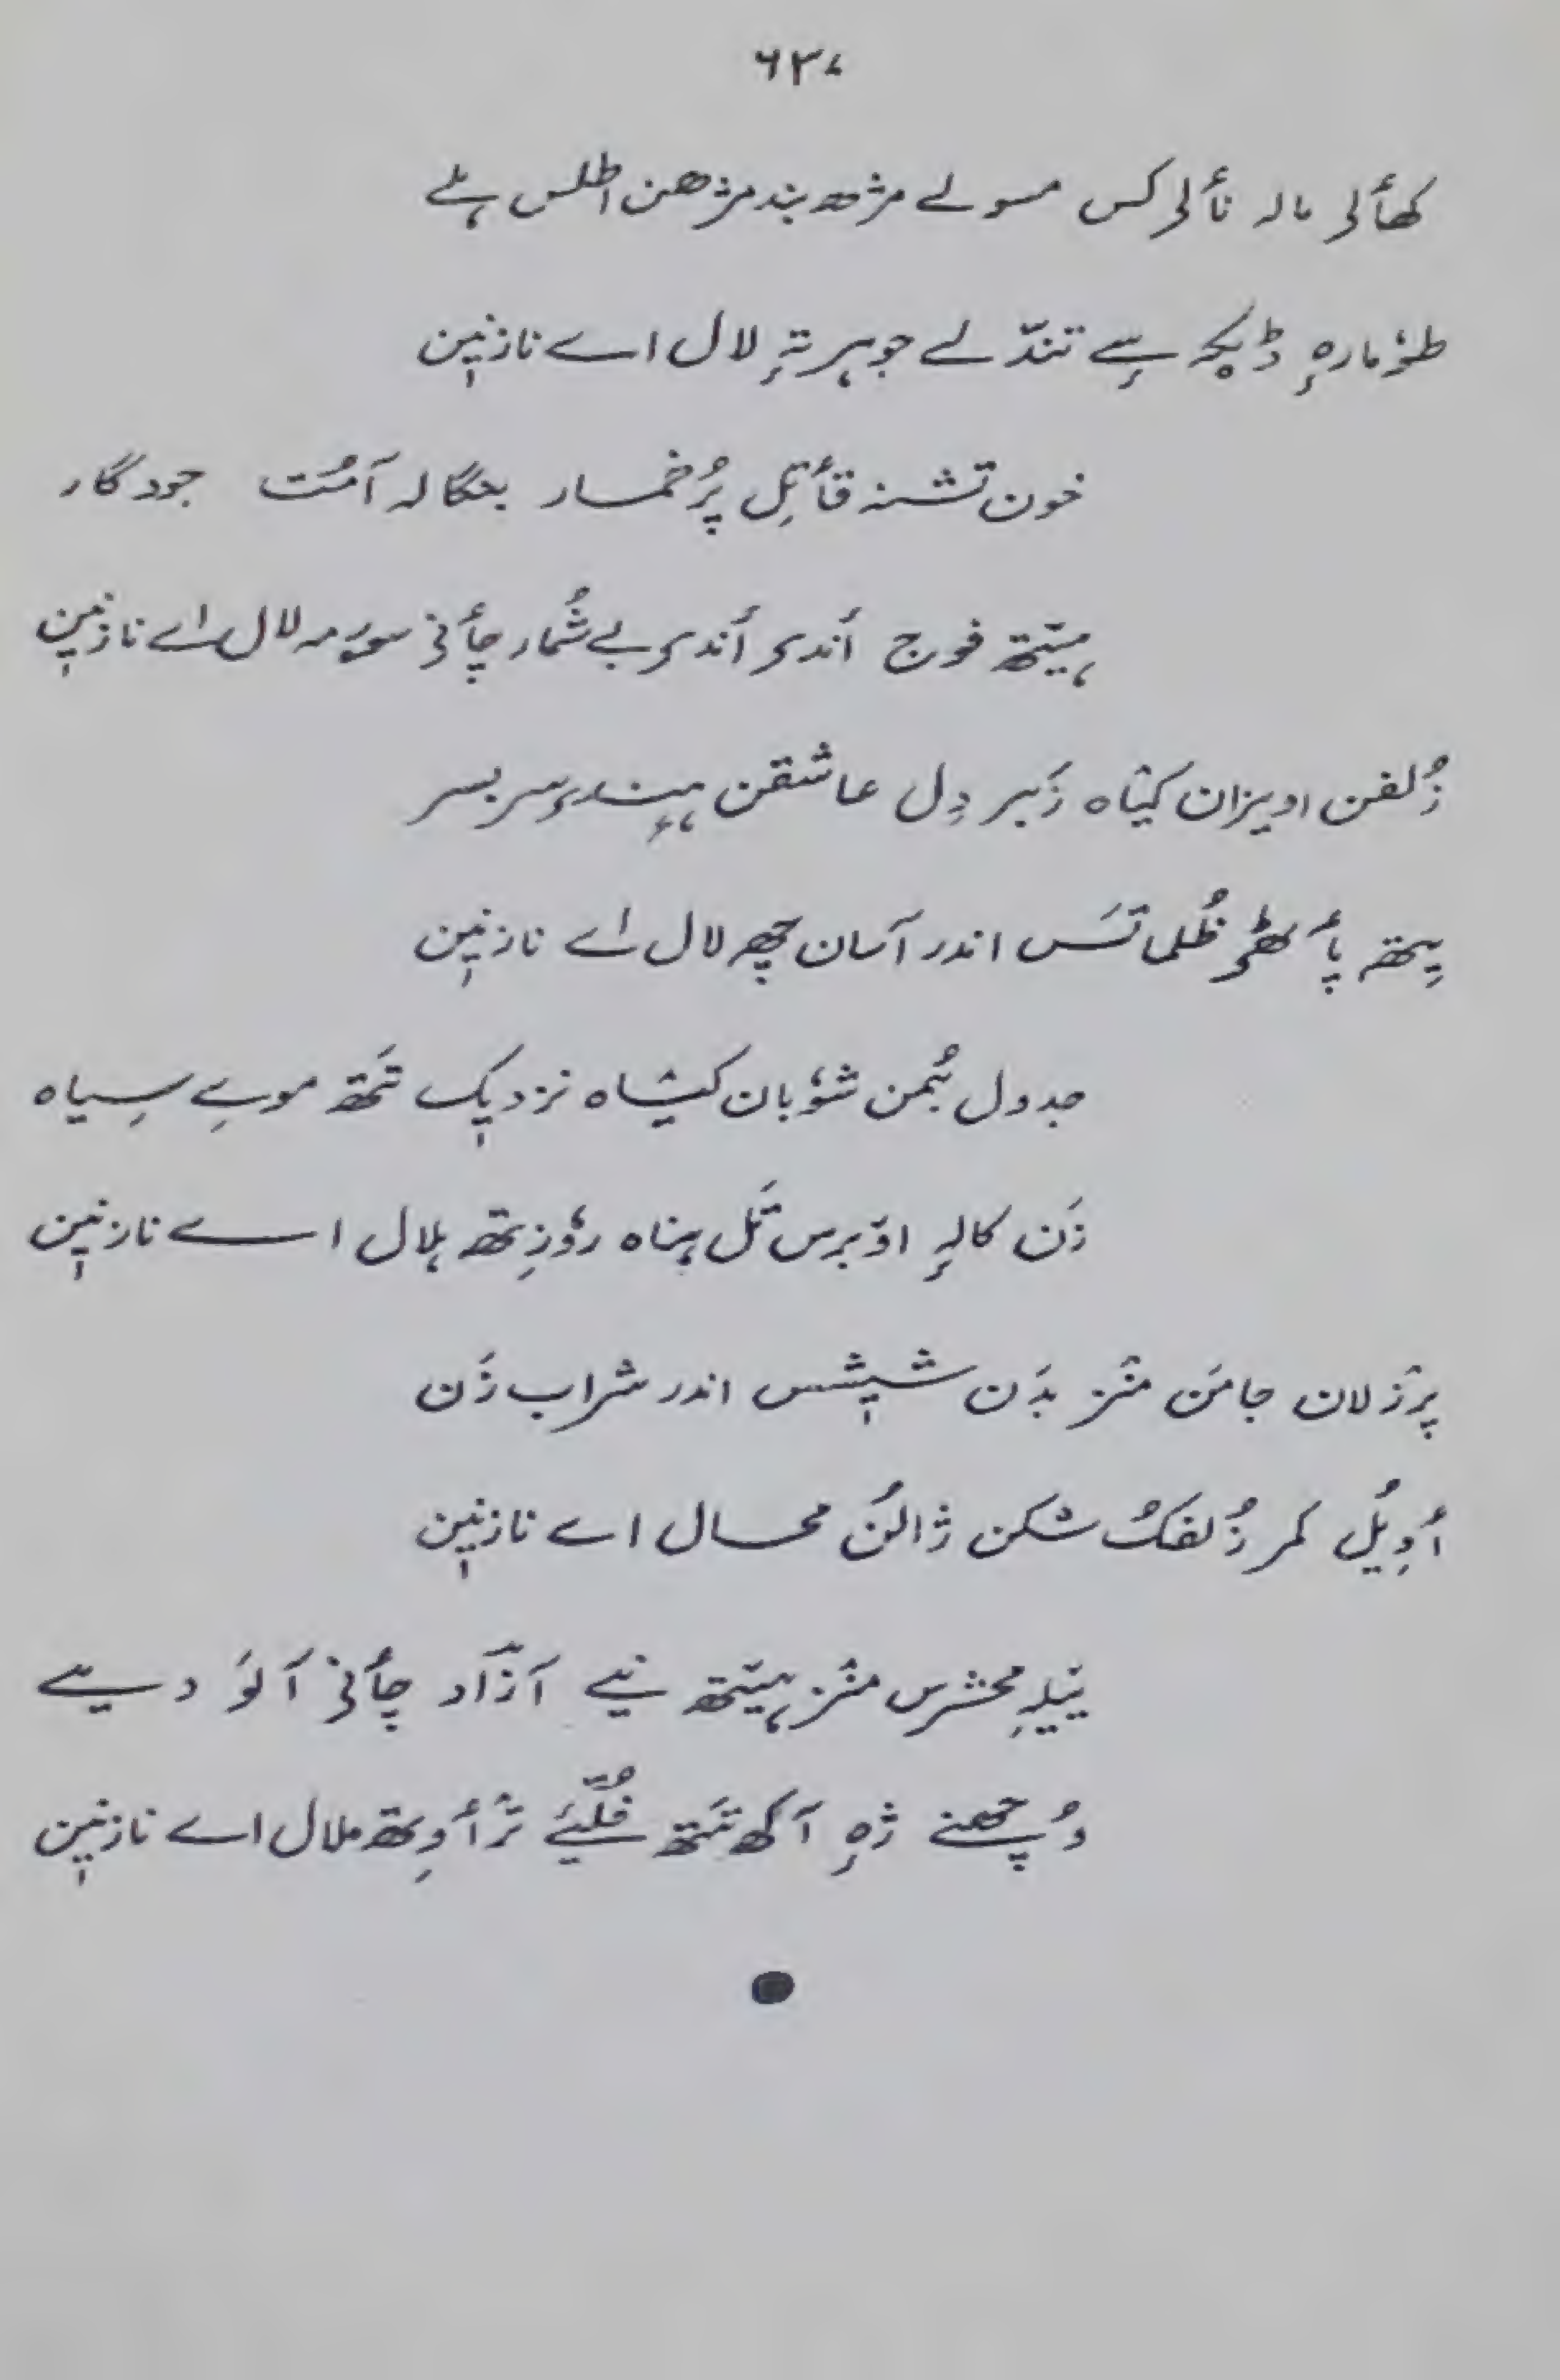 ۶۳۷
کھٲلی مالہ نٲلی کس مسولے مژھ بند مژھن اطلس ہلے
طوٗمارہِ ڈیکہٕ سٕے تندّلے جوہر تہٕ لال اے نازنیٖن
خون تشنہ قٲتِل پُرخمسار بنگالہ آمُت جودگار
ہیٚتھ فوج أندۍ أندۍ بے شُمار چٲنۍ سۄرمہ لال اے نازنیٖن
زُلفن اویزان کیٛاہ زَبر دِل عاشقن ہٕندۍ سربسر
یِتھہٕ پٲٹھۍ ظُلماتَس اندر آسان چھِہ لال اے نازنیٖن
جدول بُمن شوٗبان کیٛشاہ نزدیٖک تَتھ موے سِیاہ
زَن کالہِ اوٚبرس تَل پناہ روٗزِتھ ہلال اے نازنیٖن
پرٛزلان جامَن منٛز بدَن شیٖشس اندر شراب زَن
أوِیُل کمر زُلفَکُ شکن ژالُن محال اے نازنیٖن
ییٚلہِ محشرس منٛز ہیٚتھ نیے آزٓاد چٲنۍ آلَو دِیے
وُچھنے ژہٕ اَکھ تَتھ فُلّیے ترٛٲوِتھ ملال اے نازنیٖن